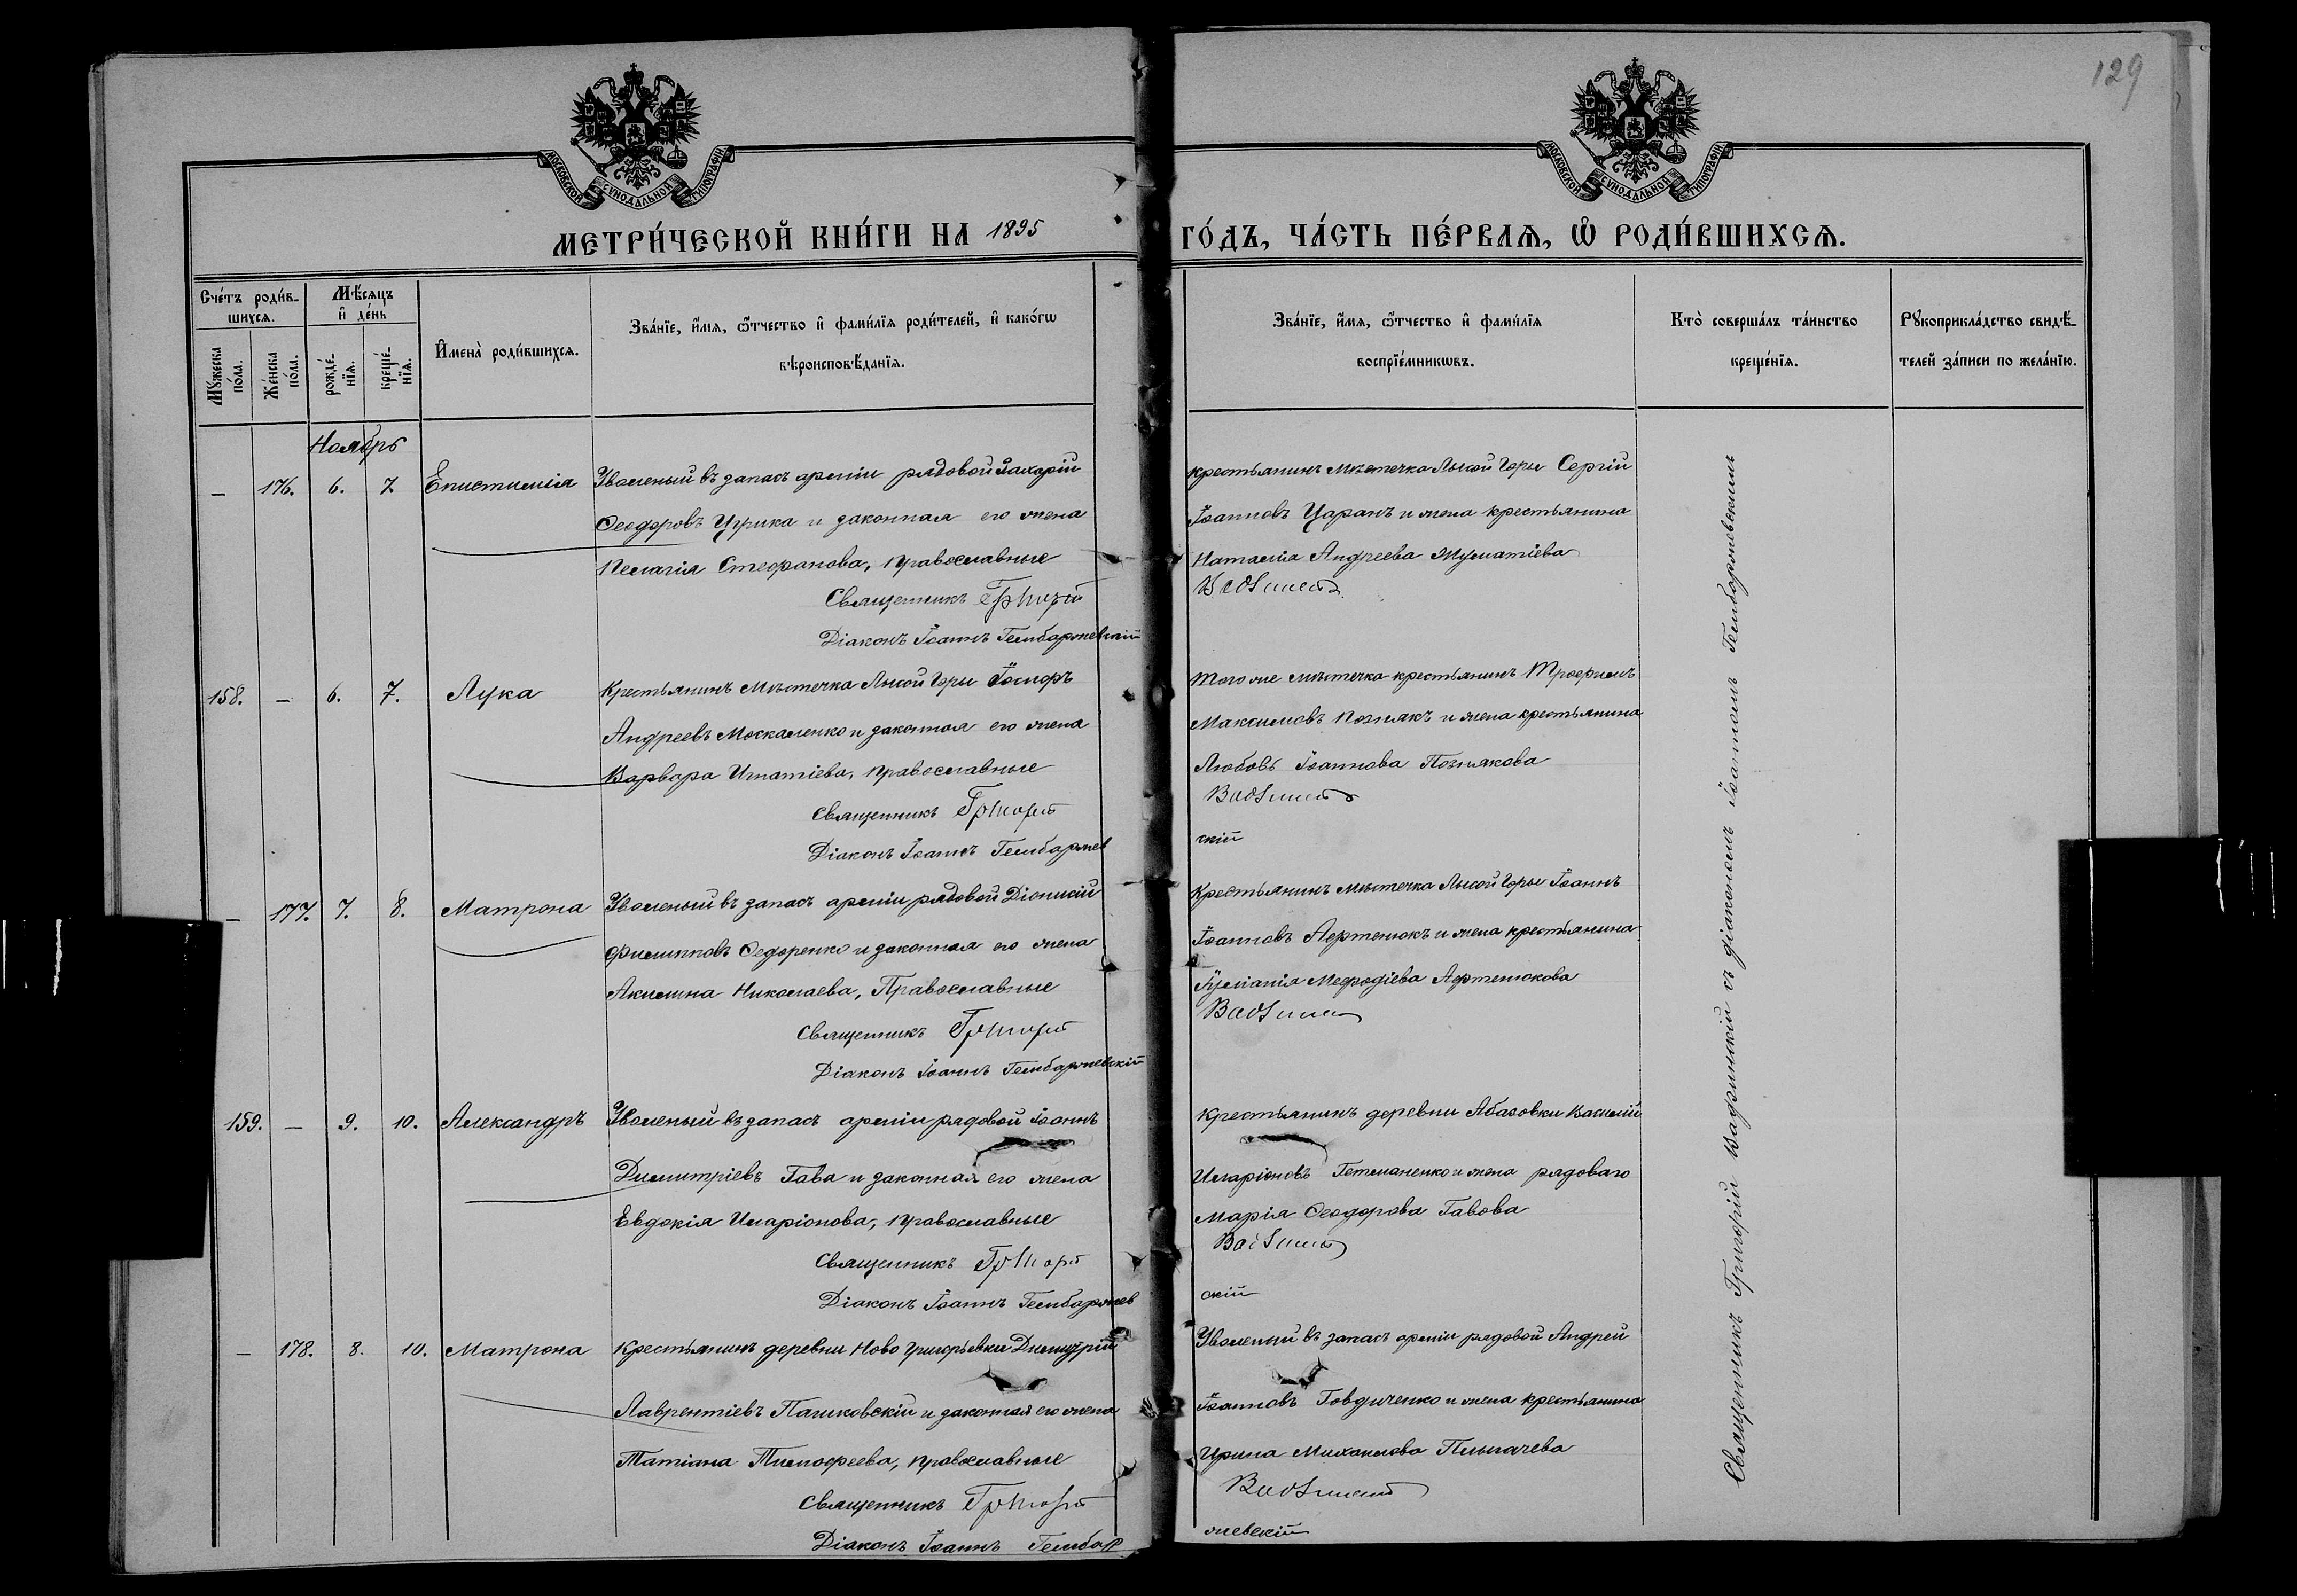 129
МОСКОВСКОЙ СУНОДАЛЬНОЙ ТИПОГРАФІИ
МОСКОВСКОЙ СУНОДАЛЬНОЙ ТИПОГРАФІИ
МЕТРИ́ЧЕСКОЙ КНИ́ГИ НА 1895 ГО́ДЪ, ЧА́СТЬ ПЕ́РВАѦ, Ѡ҆ РОДИ́ВШИХСѦ.
Сче́тъ роди́в-
шихсѧ.
Мꙋ́жеска
по́ла.
Же́нска
по́ла.
Мѣ́сѧцъ
и҆ де́нь
рожде́-
нїѧ.
креще́-
нїѧ.
И҆мена̀ роди́вшихсѧ.
Зва́нїе, и҆́мѧ, ѻ҆́тчество и҆ фами́лїѧ роди́телей, и҆ како́гѡ
вѣроисповѣ́данїѧ.
Зва́нїе, и҆́мѧ, ѻ҆́тчество и҆ фами́лїѧ
воспрїе́мникѡвъ.
Кто̀ соверша́лъ та́инство
креще́нїѧ.
Рꙋкоприкла́дство свидѣ́-
телей за́писи по жела́нїю.
Ноябрь
– 176. 6. 7. Епистимія
Уволеный въ запасъ арміи рядовой Захарій
Ѳеодоровъ Цурика и законная его жена
Пелагія Стефанова, православные
Священникъ Григорій
Діаконъ Іоаннъ Гембаржевскій
крестьянинъ мѣстечка Лысой Горы Сергій
Іоанновъ Царанъ и жена крестьянина
Наталія Андреева
158. – 6. 7. Лука
Крестьянинъ мѣстечка Лысой Горы Іосифъ
Андреевъ Москаленко и законная его жена
Варвара Игнатіева, православные
Священникъ Григорій
Діаконъ Іоаннъ Гембаржев
скій
того же мѣстечка крестьянинъ Трофимъ
Максимовъ Познякъ и жена крестьянина
Любовь Іоаннова Познякова
– 177. 7. 8. Матрона
Уволеный въ запасъ арміи рядовой Діонисій
Филипповъ Ѳедоренко и законная его жена
Акилина Николаева, Православные
Священникъ Григорій
Діаконъ Іоаннъ Гембаржевскій
Крестьянинъ мѣстечка Лысой Горы Іоаннъ
Іоанновъ Афтенюкъ и жена крестьянина
Іуліанія Мефодіева Афтенюкова
159. – 9. 10. Александръ
Уволеный въ запасъ арміи рядовой Іоаннъ
Димитріевъ Гава и законная его жена
Евдокія Иларіонова, православные
Священникъ Григорій
Діаконъ Іоаннъ Гембаржев
скій
Крестьянинъ деревни Абазовки Василій
Иларіоновъ Гетманенко и жена рядоваго
Марія Ѳеодорова Гавова
– 178. 8. 10. Матрона
Крестьянинъ деревни Ново Григорьевки Димитрій
Лаврентіевъ Пашковскій и законная его жена
Татіана Тимофеева, православные
Священникъ Григорій
Діаконъ Іоаннъ Гембар
жевскій
Уволеный въ запасъ арміи рядовой Андрей
Іоанновъ Говдиченко и жена крестьянина
Ирина Михаилова
Священникъ Григорій Вадзинскій съ діакономъ Іоанномъ Гембаржевскимъ